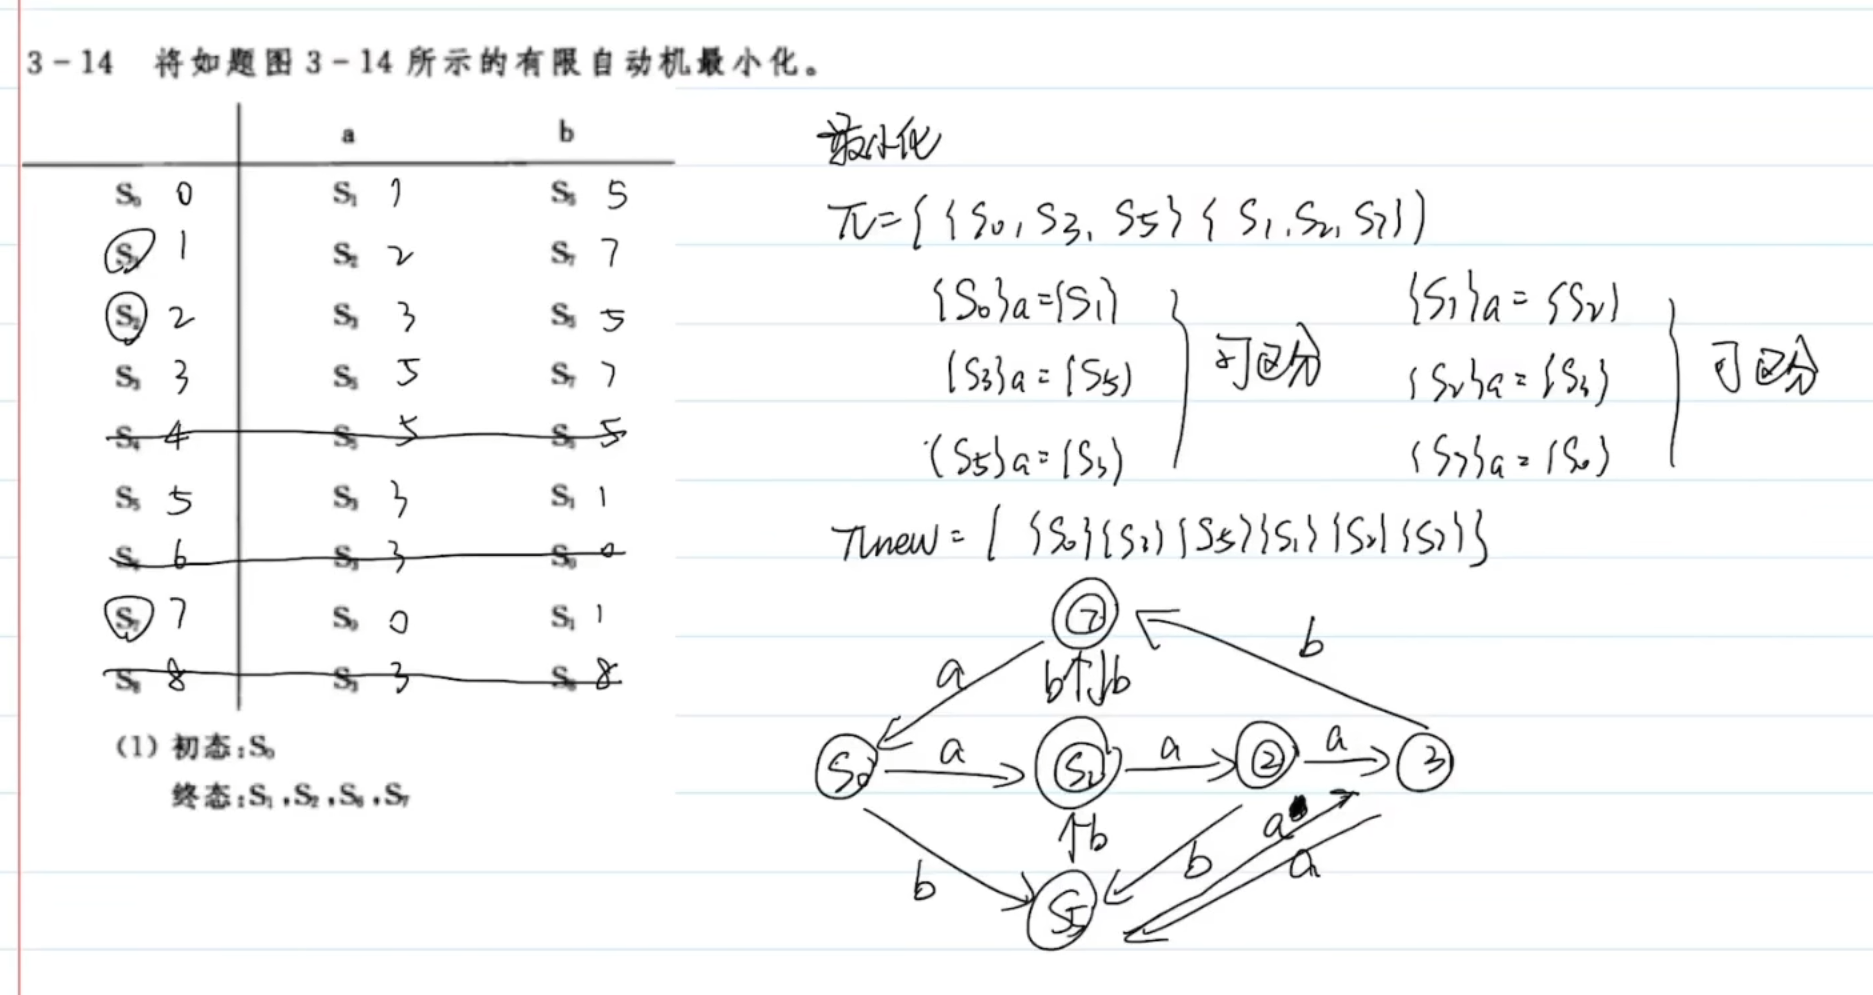 3-14 将如题图 3-14 所示的有限自动机最小化。
a b
S₀ 0 S₁ 1 S₅ 5
S₁ 1 S₂ 2 S₇ 7
S₂ 2 S₃ 3 S₅ 5
S₃ 3 S₅ 5 S₇ 7
S₄ 4 S₅ 5 5
S₅ 5 S₃ 3 S₁ 1
6 S₃ 3 S₀ 0
S₇ 7 S₀ 0 S₁ 1
S₈ 8 S₃ 3 8
(1) 初态:S₀
终态:S₁,S₂,S₆,S₇
最小化
π={{S₀,S₃,S₅}{S₁,S₂,S₇}}
{S₀}a={S₁}
{S₃}a={S₅}
{S₅}a={S₃}
可区分
{S₁}a={S₂}
{S₂}a={S₃}
{S₇}a={S₀}
可区分
πnew={{S₀}{S₃}{S₅}{S₁}{S₂}{S₇}}
7
a b b b
S₀ a S₁ a 2 a 3
b b b a a
S₅